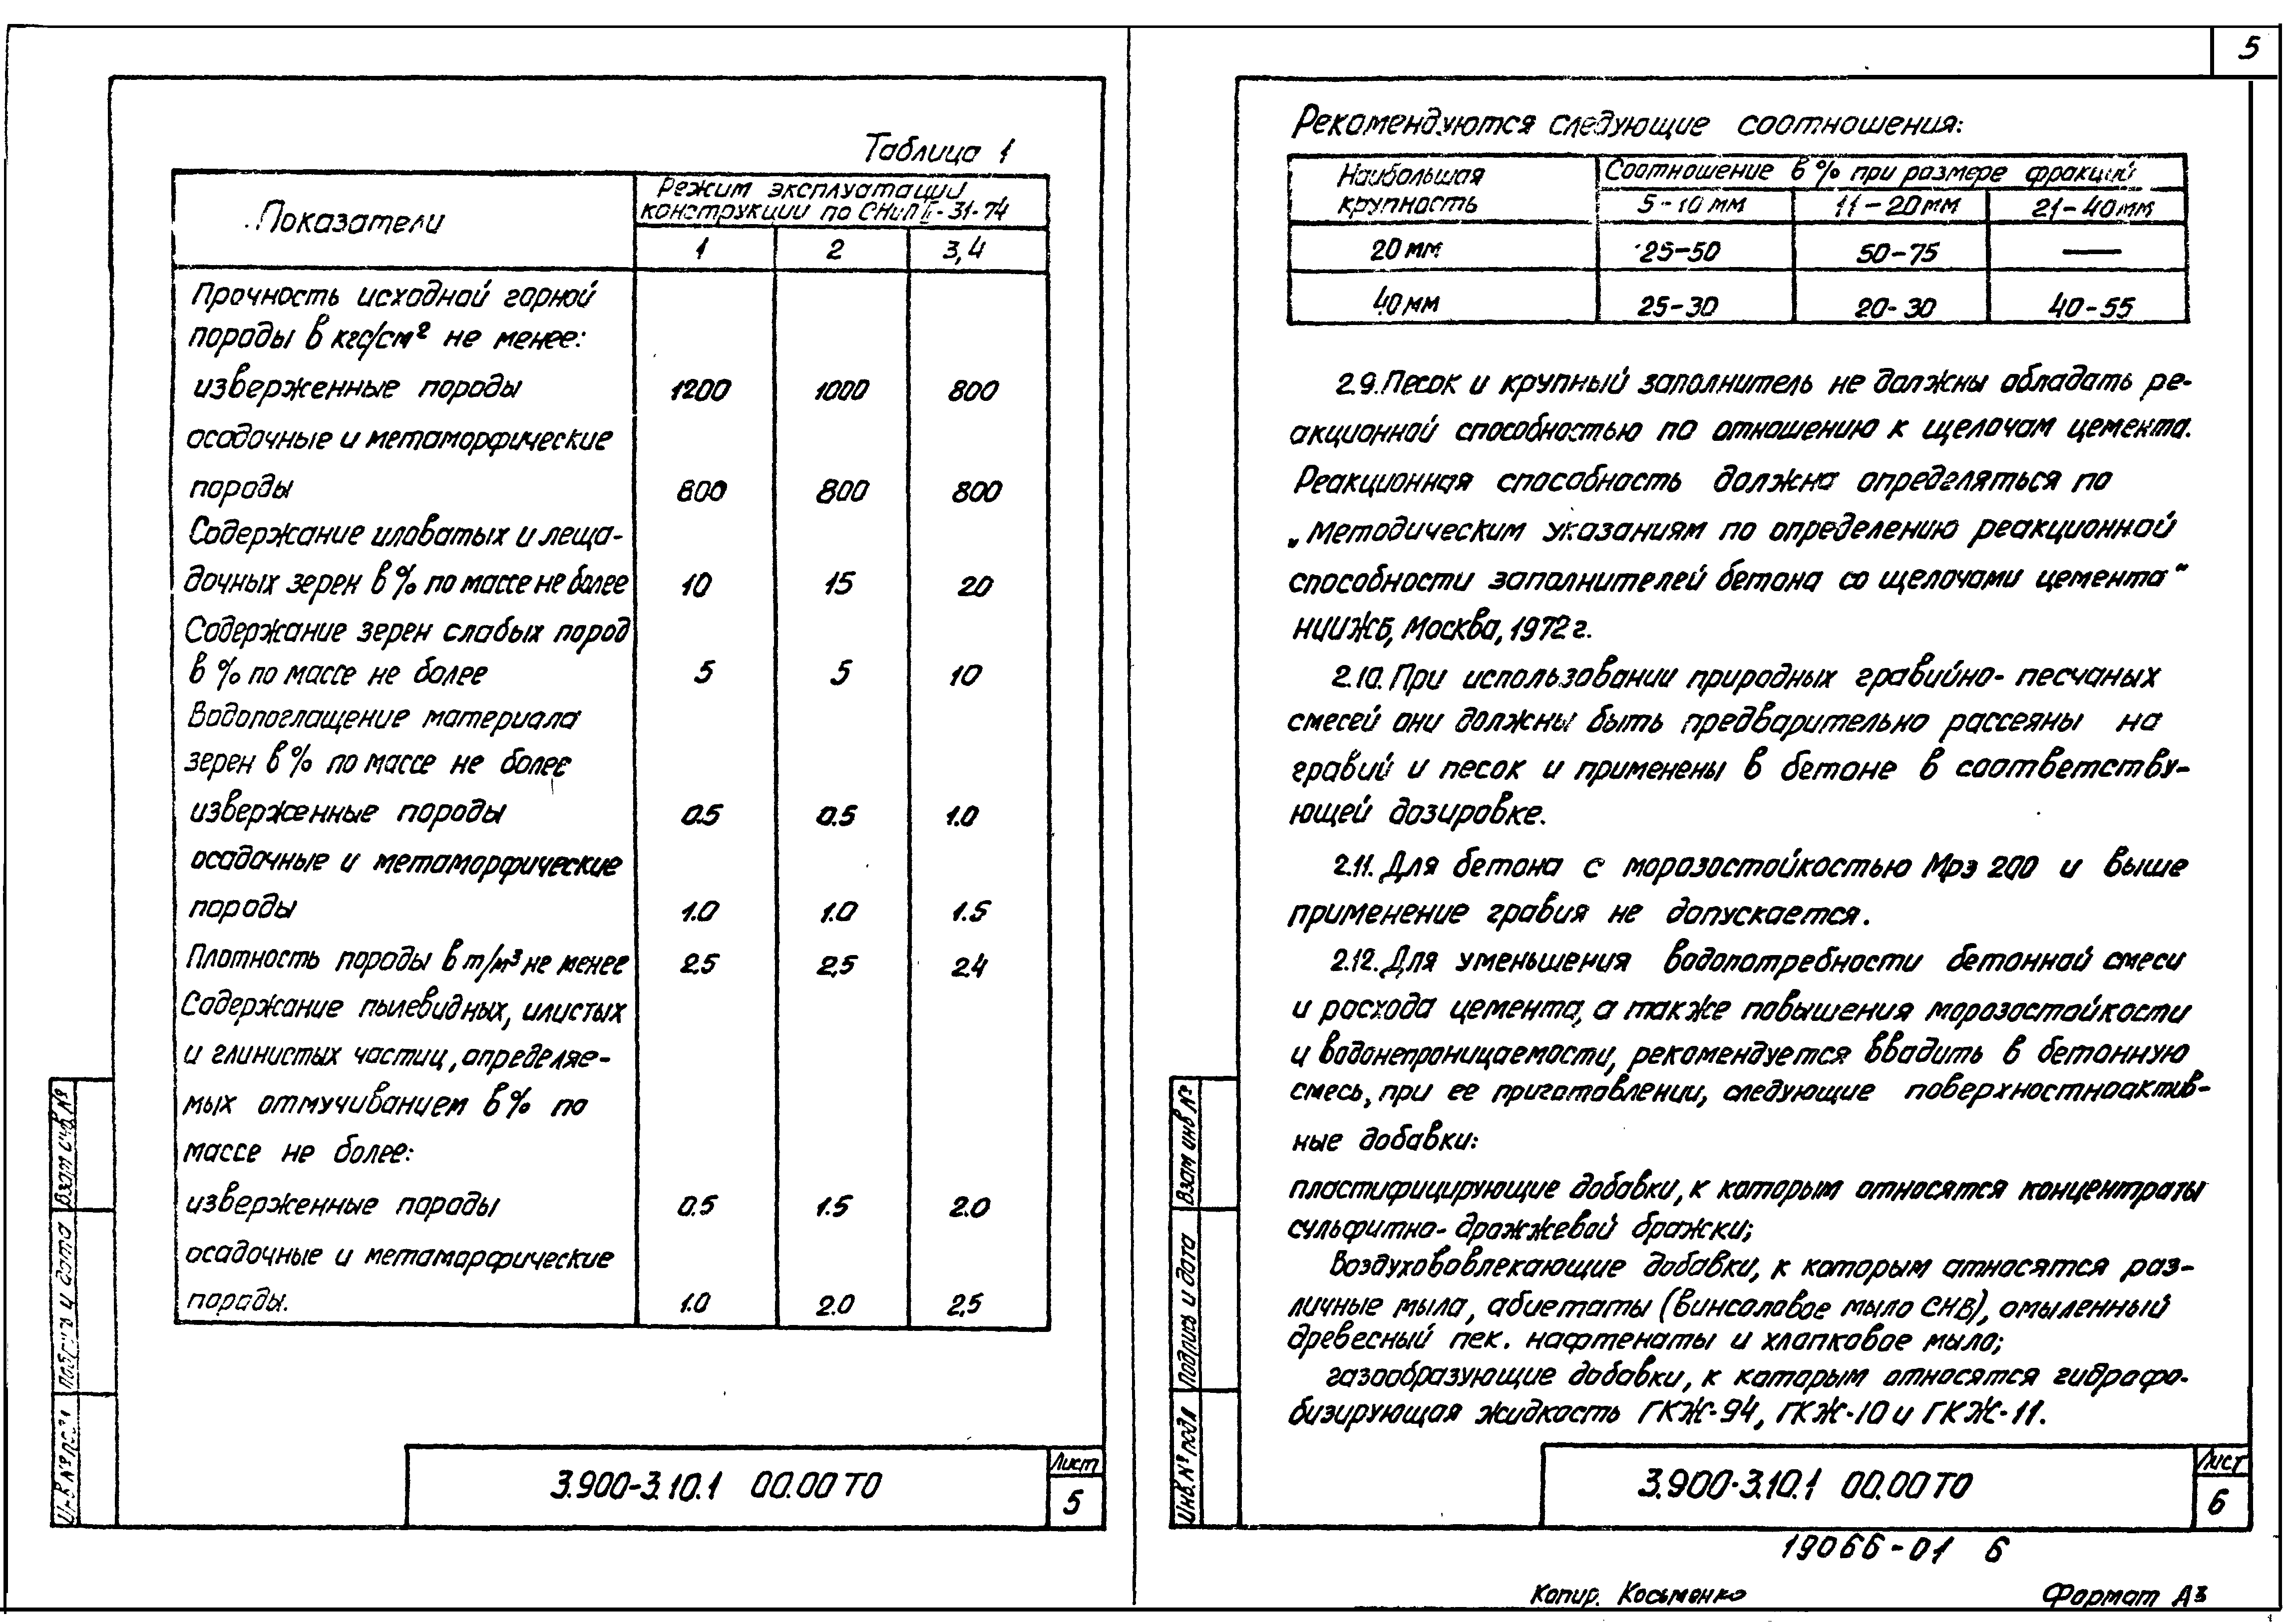 5
Таблица 1
Показатели
Режим эксплуатации
конструкции по СНиП II-31-74
1 2 3,4
Прочность исходной горной
породы в кгс/см² не менее:
изверженные породы 1200 1000 800
осадочные и метаморфические
породы 800 800 800
Содержание иловатых и леща-
дочных зерен в % по массе не более 10 15 20
Содержание зерен слабых пород
в % по массе не более 5 5 10
Водопоглащение материала
зерен в % по массе не более
изверженные породы 0.5 0.5 1.0
осадочные и метаморфические
породы 1.0 1.0 1.5
Плотность породы в т/м³ не менее 2.5 2,5 2.4
Содержание пылевидных, илистых
и глинистых частиц, определяе-
мых отмучиванием в % по
массе не более:
изверженные породы 0.5 1.5 2.0
осадочные и метаморфические
породы. 1.0 2.0 2,5
Взам инв №
Подпись и дата
Инв № подл
3.900-3.10.1 00.00 ТО
Лист
5
Рекомендуются следующие соотношения:
Наибольшая
крупность
Соотношение в % при размере фракций
5-10 мм 11-20 мм 21-40 мм
20 мм 25-50 50-75 —
40 мм 25-30 20-30 40-55
2.9. Песок и крупный заполнитель не должны обладать ре-
акционной способностью по отношению к щелочам цемента.
Реакционная способность должна определяться по
„Методическим указаниям по определению реакционной
способности заполнителей бетона со щелочами цемента"
НИИЖБ, Москва, 1972 г.
2.10. При использовании природных гравийно-песчаных
смесей они должны быть предварительно рассеяны на
гравий и песок и применены в бетоне в соответству-
ющей дозировке.
2.11. Для бетона с морозостойкостью Мрз 200 и выше
применение гравия не допускается.
2.12. Для уменьшения водопотребности бетонной смеси
и расхода цемента, а также повышения морозостойкости
и водонепроницаемости, рекомендуется вводить в бетонную
смесь, при ее приготовлении, следующие поверхностноактив-
ные добавки:
пластифицирующие добавки, к которым относятся концентраты
сульфитно-дрожжевой бражки;
воздухововлекающие добавки, к которым относятся раз-
личные мыла, абиетаты (винсоловое мыло СНВ), омыленный
древесный пек. нафтенаты и хлопковое мыло;
газообразующие добавки, к которым относятся гидрофо-
бизирующая жидкость ГКЖ-94, ГКЖ-10 и ГКЖ-11.
Взам инв №
Подпись и дата
Инв. № подл
3.900-3.10.1 00.00 ТО
Лист
6
19066-01 6
Копир. Косьменко
Формат А3